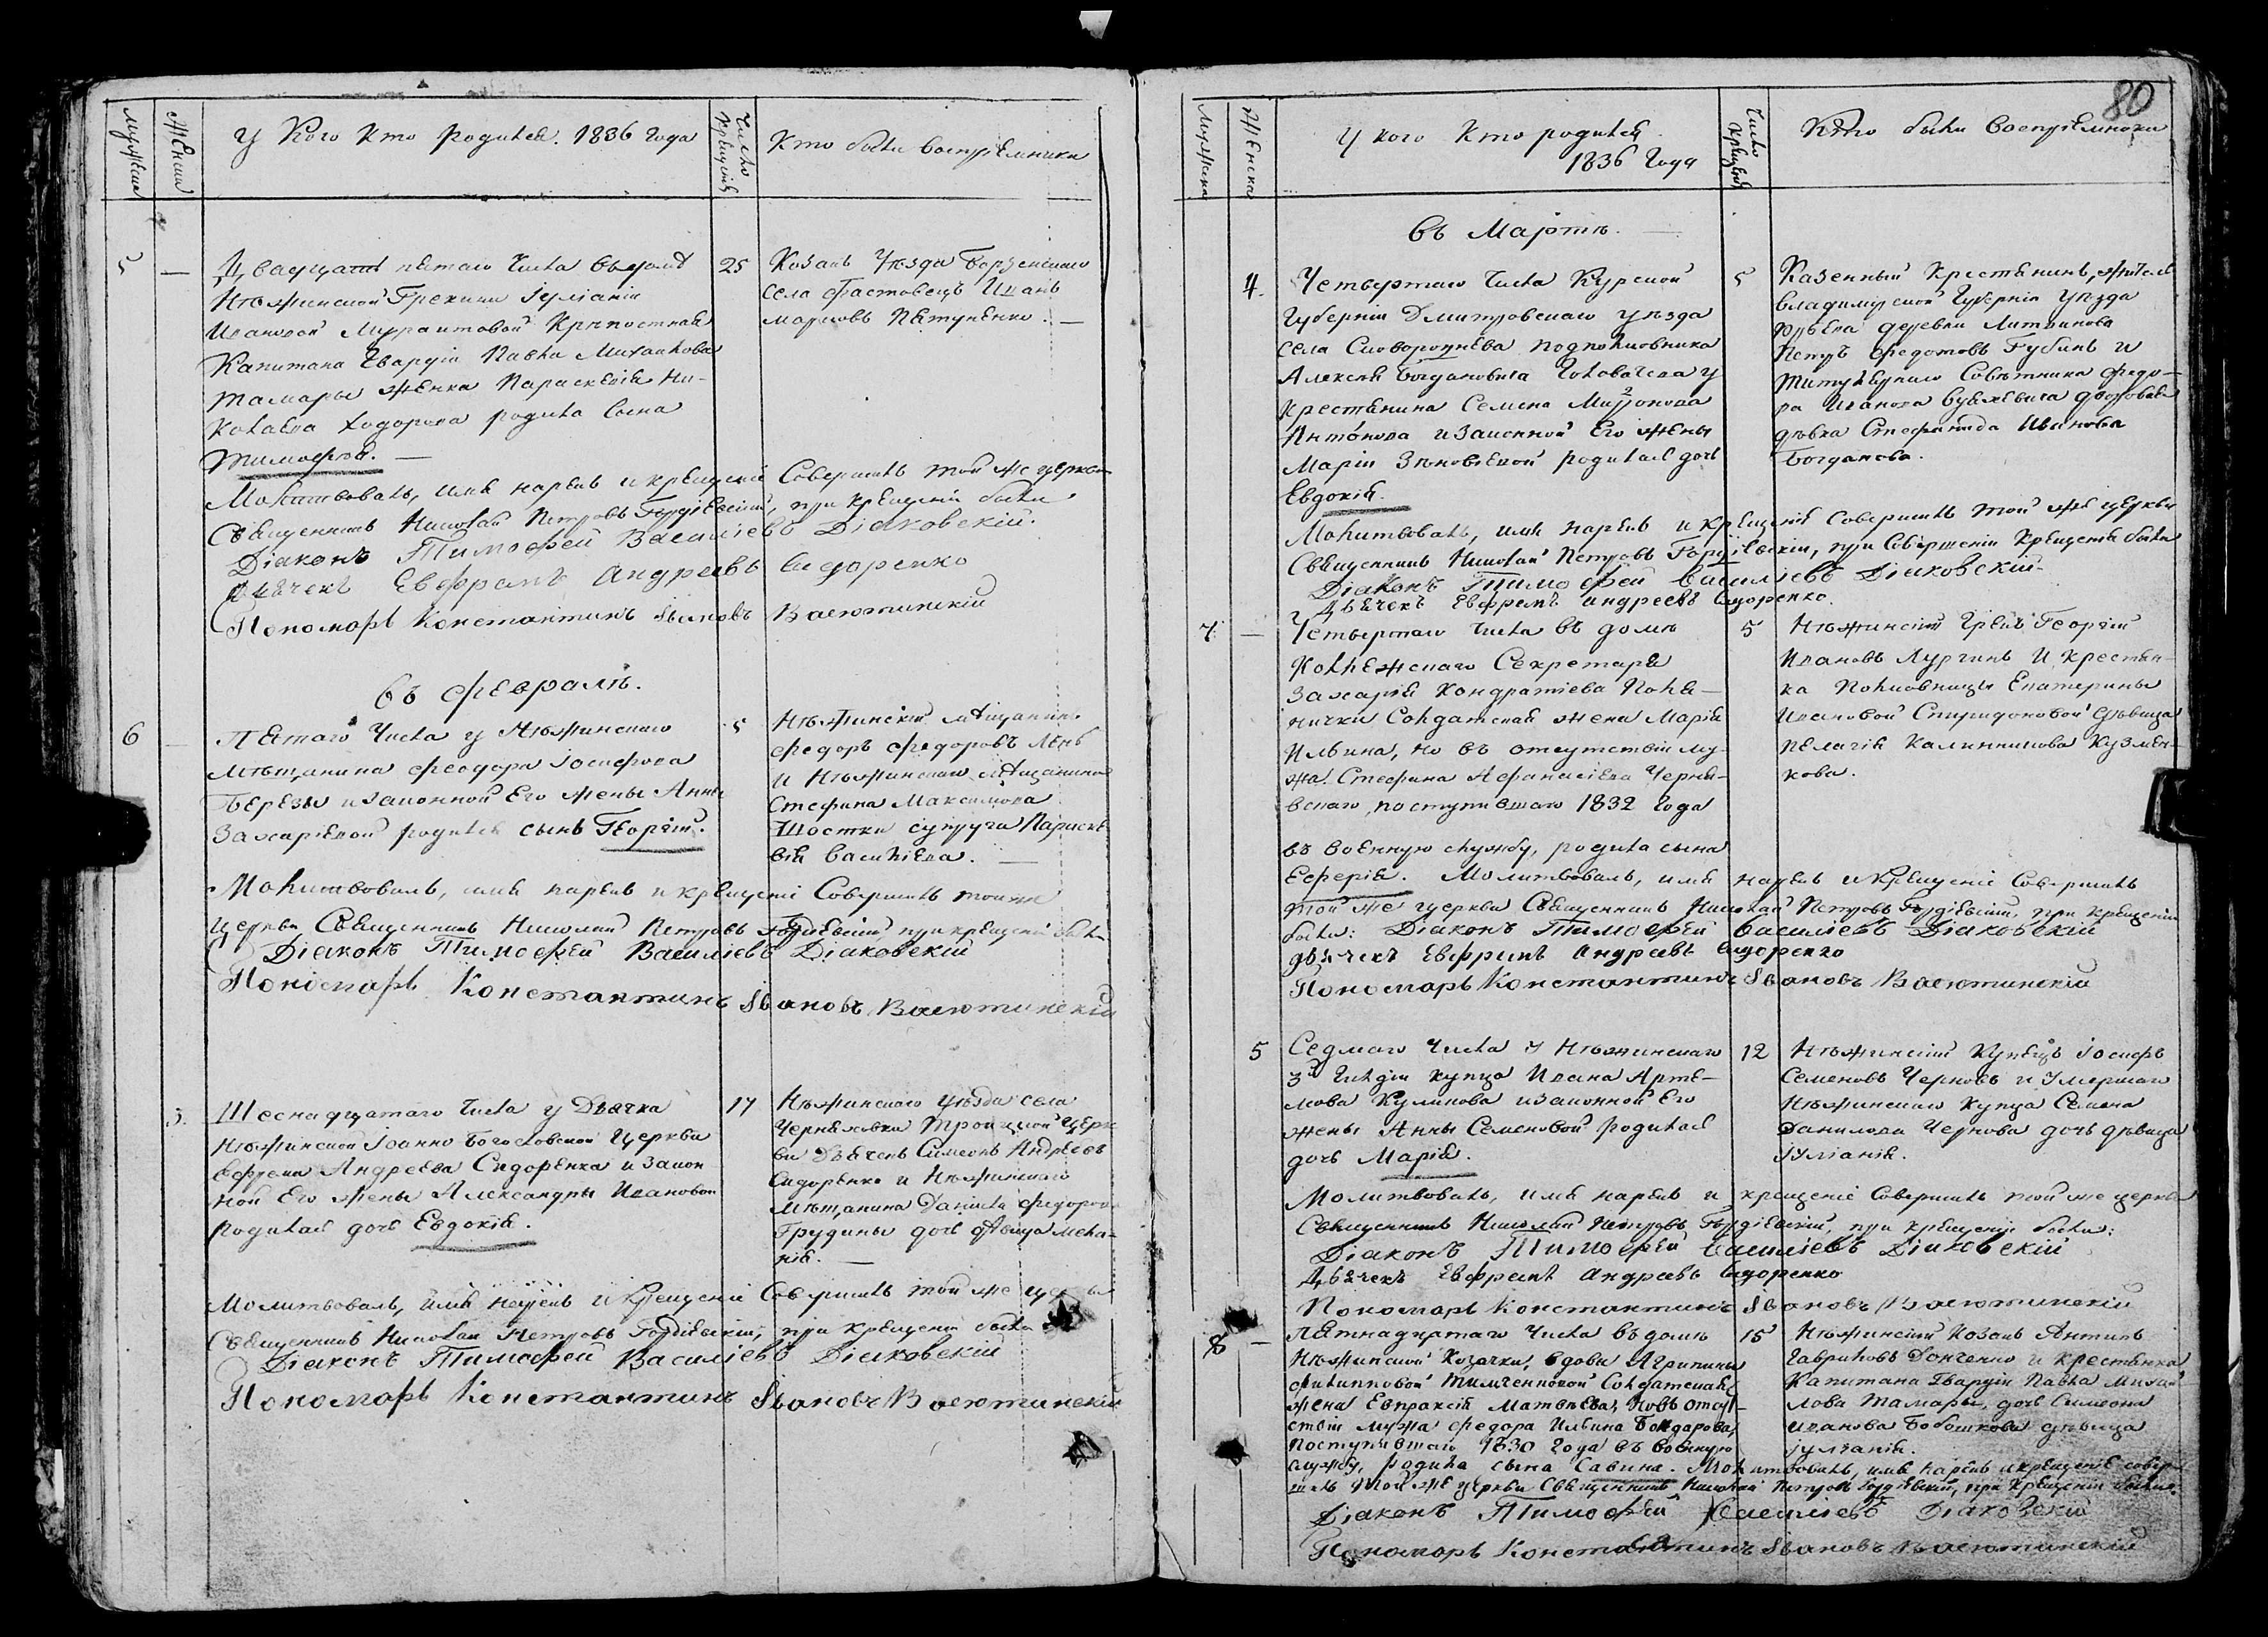 мужеска
женска
У кого кто родился. 1836 года
Число крещенія
Кто были воспріемники
5
—
Двадцать пятаго числа въ домѣ
Нѣжинской Грекини Іуліаніи
Ивановой Крѣпостная
Капитана Гвардіи Павла Михайлова
Тамары женка Параскевія Ни-
колаева Ходорова родила сына
Тимофея. —
25
Козакъ Уѣзда Борзенскаго
села Фастовецъ Иванъ
Марковъ Пѣтупенко. —
Молитвовалъ, имя нарекъ и крещеніе Совершилъ той же церкви
Священникъ Николай Петровъ Гордіевскій, при крещеніи были
Діаконъ Тимофей Василіевъ Діаковскій.
Дьячекъ Евфремъ Андреевъ Сидоренко
Пономарь Константинъ Івановъ Васютинскій
въ Февралѣ.
6
—
Пятаго числа у Нѣжинскаго
мѣщанина Феодора Іосифова
Березы и законной Его жены Анны
Захаріевой родился сынъ Георгій.
5
Нѣжинскій мѣщанинъ
Федоръ Федоровъ Лень
и Нѣжинскаго мѣщанина
Стефана Максимова
Шостки супруга Параске-
вія Василіева. —
Молитвовалъ, имя нарекъ и крещеніе Совершилъ той же
церкви, Священникъ Николай Петровъ Гордіевскій при крещеніи были
Діаконъ Тимофей Василіевъ Діаковскій
Пономарь Константинъ Івановъ Васютинскій
3.
Шеснадцатаго числа у Дьячка
Нѣжинской Іоанно Богословской Церкви
Ефрема Андреева Сидоренка и закон
ной Его жены Александры Ивановой
родилась дочь Евдокія.
17
Нѣжинскаго уѣзда села
Черняховки Троицкой Церк
ви Дьячекъ Симеонъ Андреевъ
Сидоренко и Нѣжинскаго
мѣщанина Данила Федорова
Грудины дочь дѣвица Мела-
нія. —
Молитвовалъ, имя нарекъ и крещеніе Совершилъ той же церкви
Священникъ Николай Петровъ Гордіевскій, при крещеніи были
Діаконъ Тимофей Василіевъ Діаковскій
Пономарь Константинъ Івановъ Васютинскій
80
мужеска
женска
У кого кто родился
1836 года
Число крещенія
Кто были воспріемники
въ Мартѣ.
4.
Четвертаго числа Курской
Губерніи Дмитровскаго уѣзда
села Сковороднева подполковника
Алексѣя Богдановича у
Крестянина Семена
Антонова и законной Его жены
Маріи Зѣновіевой родилась дочь
Евдокія.
5
Казенный Крестянинъ, житель
Владимірской Губерніи уѣзда
Юрьева деревни Литвинова
Петръ Федотовъ Губинъ и
Титулярнаго Совѣтника Федо-
ра Иванова дворовая
дѣвка Стефанида Иванова
Богданова.
Молитвовалъ, имя нарекъ и крещеніе совершилъ той же церкви
Священникъ Николай Петровъ Гордіевскій, при совершеніи крещенія были
Діаконъ Тимофей Василіевъ Діаковскій
Дьячекъ Евфремъ Андреевъ Сидоренко.
7
—
Четвертаго числа въ домѣ
Коллежскаго Секретаря
Захарія Кондратіева
Солдатская жена Марія
Ильина, но въ отсутствіи му-
жа Стефана Афанасіева Черня-
вскаго, поступившаго 1832 года
въ военную службу, родила сына
Евферія. Молитвовалъ, имя нарекъ и крещеніе совершилъ
той же церкви Священникъ Николай Петровъ Гордіевскій, при крещеніи
были: Діаконъ Тимофей Василіевъ Діаковскій
Дьячекъ Евфремъ Андреевъ Сидоренко
Пономарь Константинъ Івановъ Васютинскій
5
Нѣжинскій Грекъ Георгій
Ивановъ и крестян-
ка Полковницы Екатерины
Ивановой Спиридоновой дѣвица
Пелагія Калинникова Кузмен-
кова.
5
Седмаго числа у Нѣжинскаго
3й Гильдіи купца Ивана Арте-
мова Куликова и законной Его
жены Анны Семеновой родилась
дочь Марія.
12
Нѣжинскій Купецъ Іосифъ
Семеновъ Черновъ и умершаго
Нѣжинскаго купца Семена
Данилова Чернова дочь дѣвица
Іуліанія.
Молитвовалъ, имя нарекъ и крещеніе совершилъ той же церкви
Священникъ Николай Петровъ Гордіевскій, при крещеніи были:
Діаконъ Тимофей Василіевъ Діаковскій
Дьячекъ Евфремъ Андреевъ Сидоренко
Пономарь Константинъ Івановъ Васютинскій
8
—
Пятнадцатаго числа въ домѣ
Нѣжинской Козачки, вдовы Агрипины
Филипповой Тимченковой Солдатская
жена Евпраксія Матвѣева, но въ отсут-
ствіи мужа Федора Ильина Бондарова,
поступившаго 1830 года въ военную
службу, родила сына Савина. Молитвовалъ, имя нарекъ и крещеніе совер-
шилъ той же церкви Священникъ Николай Петровъ Гордіевскій, при крещеніи были:
Діаконъ Тимофей Василіевъ Діаковскій
Пономарь Константинъ Івановъ Васютинскій
15
Нѣжинскій Козакъ Антипъ
Гавриловъ Донченко и крестянка
Капитана Гвардіи Павла Михай
лова Тамары, дочь Симеона
Иванова Бобошкова дѣвица
Іуліанія.